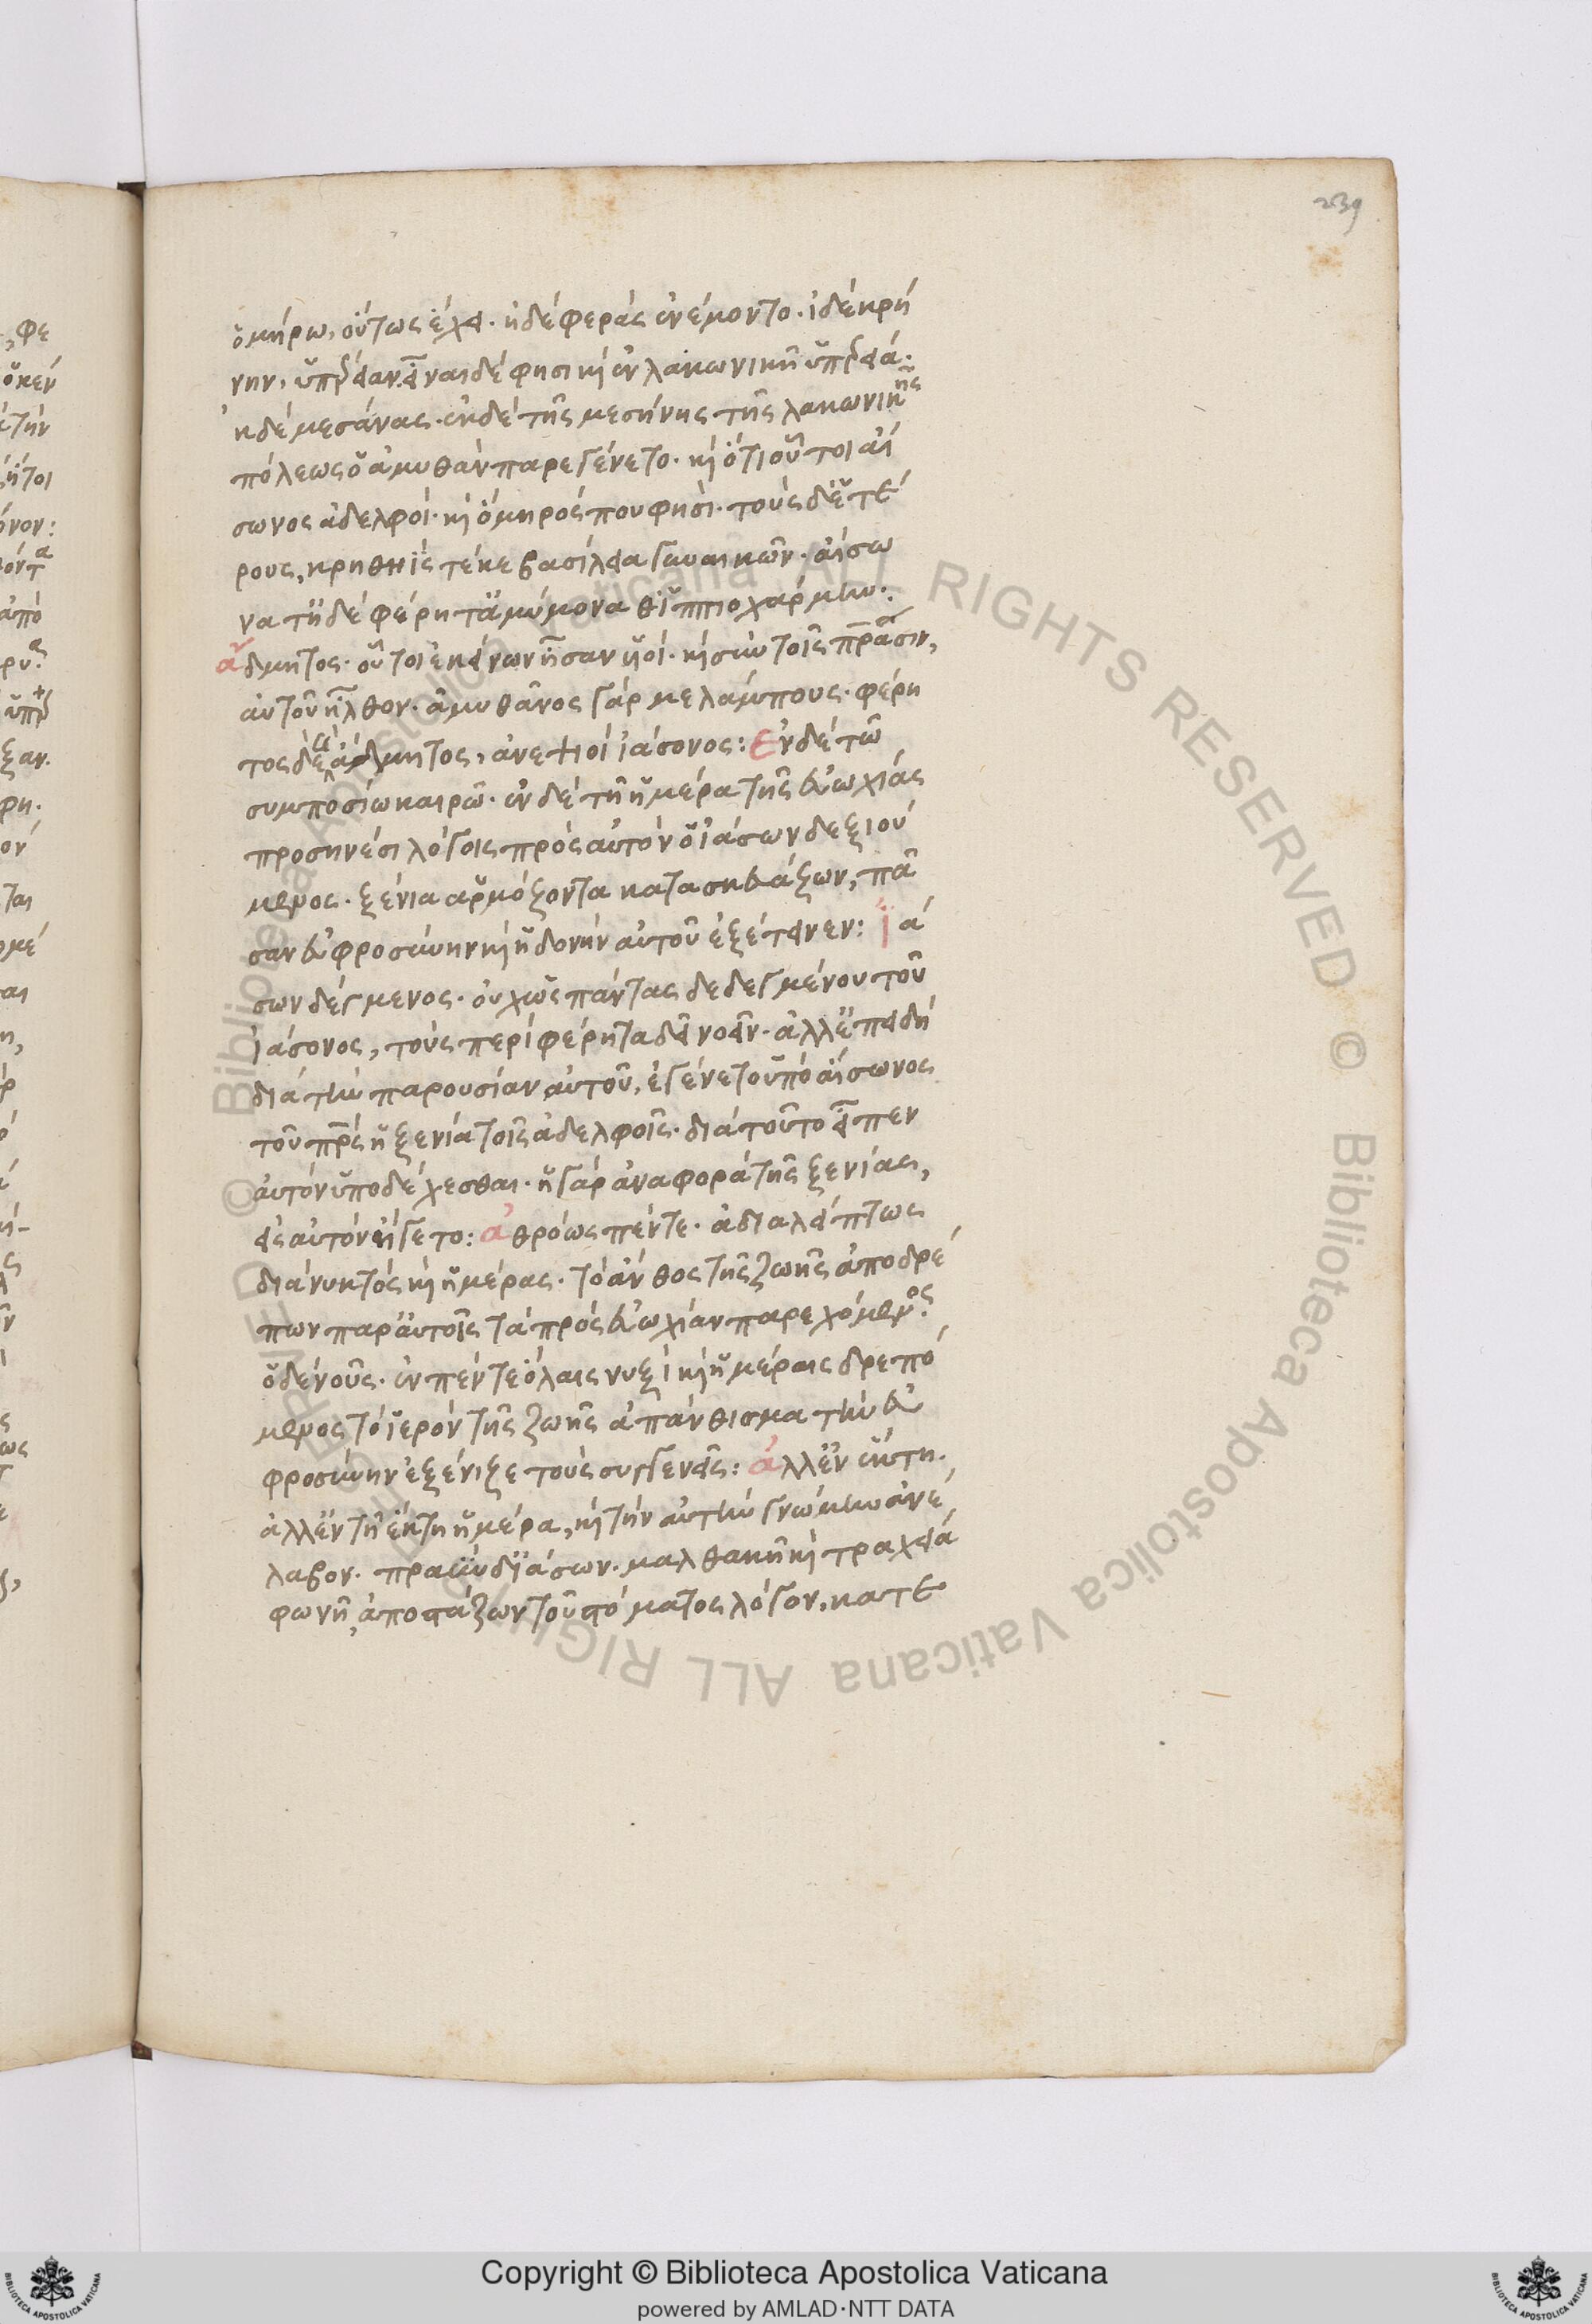 239
ὁμήρω, οὕτως ἔχει· ἠδὲ φεράς ἐνέμοντο· ἰδὲ κρή
νην, ὑπέρειαν· εἶναι δέ φησι καὶ ἐν λακωνικῆ ὑπέρεια·
ἠδὲ μεσάνας· ἐκ δὲ τῆς μεσήνης τῆς λακωνικῆς
πόλεως ὁ ἀμυθὰν παρεγένετο· καὶ ὅτι οὗτοι αἴ
σωνος ἀδελφοί· καὶ ὅμηρός που φησί· τοὺς δ' ἑτέ
ρους, κρηθηῒς τέκε βασίλεια γυναικῶν· αἴσω
να τ' ἠδὲ φέρητ' ἀμύμονα θ' ἱππιοχάρμην:
ἄδμητος· οὗτοι ἐκείνων ἦσαν υἱοί· καὶ σὺν τοῖς πατράσιν,
αὐτοῦ ἦλθον· ἀμυθᾶνος γὰρ μελάμπους· φέρη
τος δὲ ἄδμητος, ἀνεψιοὶ ἰάσονος: Ἐν δὲ τῶ
συμποσίω καιρῶ· ἐν δὲ τῆ ἡμέρα τῆς εὐωχίας
προσηνέσι λόγοις πρὸς αὐτὸν ὁ ἰάσων δεξιού
μενος· ξένια ἁρμόζοντα κατασκευάζων, πᾶ
σαν εὐφροσύνην καὶ ἡδονὴν αὐτοῦ ἐξέτεινεν: ἰά
σων δέγμενος· οὐχ ὡς πάντας δεδεγμένου τοῦ
ἰάσονος, τοὺς περὶ φέρητα δεῖ νοεῖν· ἀλλ' ἐπειδὴ
διὰ τὴν παρουσίαν αὐτοῦ, ἐγένετο ὑπὸ αἴσωνος
τοῦ πατρὸς ἡ ξενία τοῖς ἀδελφοῖς· διὰ τοῦτο εἶπεν
αὐτὸν ὑποδέχεσθαι· ἡ γὰρ ἀναφορὰ τῆς ξενίας,
εἰς αὐτὸν ἤγετο: ἀθρόως πέντε· ἀδιαλείπτως
διὰ νυκτὸς καὶ ἡμέρας· τὸ ἄνθος τῆς ζωῆς ἀποδρέ
πων παρ' αὐτοῖς τὰ πρὸς εὐωχίαν παρεχόμενος:
ὁ δὲ νοῦς· ἐν πέντε ὅλαις νυξὶ καὶ ἡμέραις δρεπό
μενος τὸ ἱερὸν τῆς ζωῆς ἀπάνθισμα τὴν εὐ
φροσύνην ἐξένιζε τοὺς συγγενεῖς: ἀλλ' ἐν ἕκτη·
ἀλλ' ἐν τῆ ἕκτη ἡμέρα, καὶ τὴν αὐτὴν γνώμην ἀνέ
λαβον· πραῢν δ' ἰάσων· μαλθακῆ καὶ τραχεία
φωνῆ, ἀποστάζων τοῦ στόματος λόγον, κατε